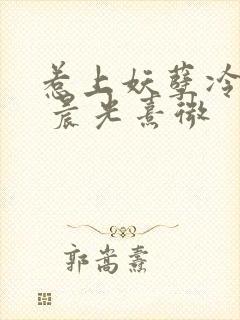 惹上妖孽冷
晨光熹微
郭嵩焘